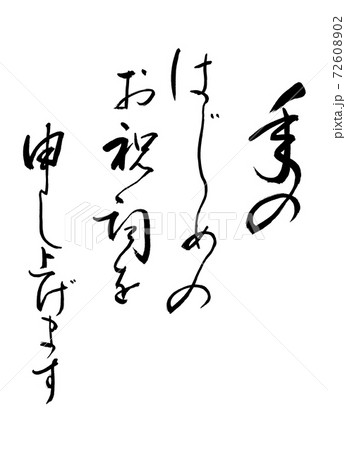 年の
はじめの
お祝詞を
申し上げます
PIXTA
pixta.jp - 72608902